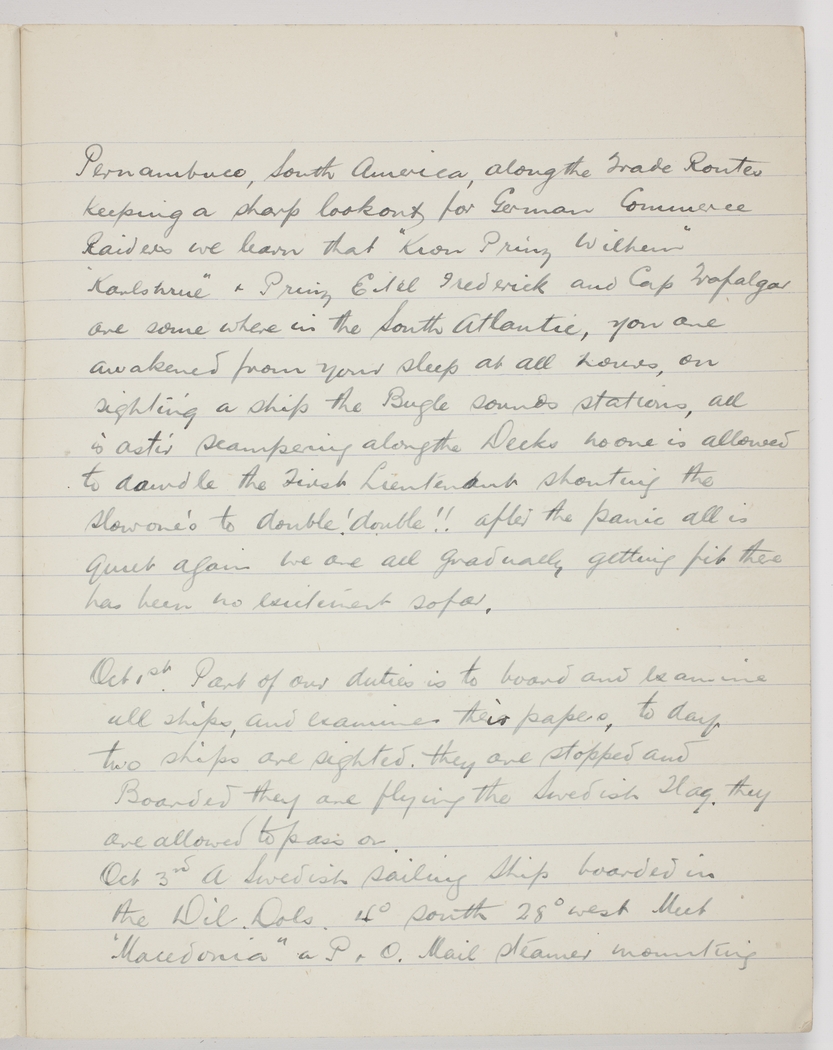 Pernambuco, South America, along the Trade Routes
keeping a sharp lookout for German Commerce
Raiders we learn that "Kron Prinz Wilhem"
"Karlshrue" & Prinz Eitel Frederick and Cap Trafalgar
are some where in the South Atlantic, you are
awakened from your sleep at all hours, on
sighting a ship the Bugle sounds stations, all
is astir scampering along the Decks no one is allowed
to dawdle the First Lieutenant shouting the
slowone's to double! double!! after the panic all is
quiet again we are all gradually getting fit there
has been no excitement sofar.
Oct 1st. Part of our duties is to board and examine
all ships, and examine their papers, to day
two ships are sighted. they are stopped and
Boarded they are flying the Swedish Flag. they
are allowed to pass on.
Oct 3rd A Swedish sailing ship boarded in
the 4° south 28° west Meet
"Macedonia" a P. & O. Mail steamer mounting